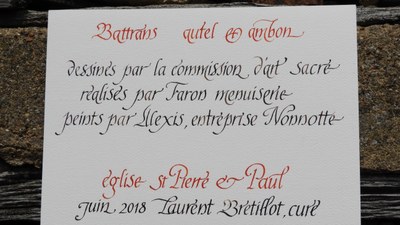 Battrans autel & ambon
dessinés par la commission d'art sacré
réalisés par Faron menuiserie
peints par Alexis, entreprise Nonnotte
église st Pierre & Paul
Juin 2018 Laurent Bretillot, curé